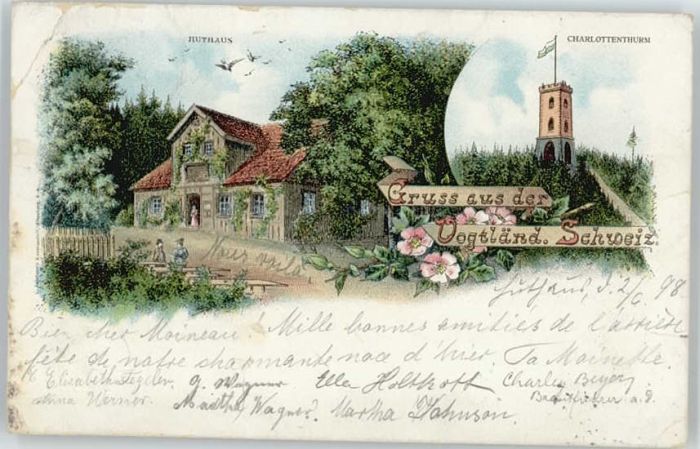 HUTHAUS
CHARLOTTENTHURM
Gruss aus der
Vogtländ. Schweiz.
Nous voilà.
d. 2/6. 98
Bien cher Moineau! Mille bonnes amitiés de l'arrière
fête de notre charmante noce d'hier. Ta Moinette.
Elisabeth G. Wagner Ella Holthoff Charles Beyer
Werner. Martha Wagner. Martha Johnson.